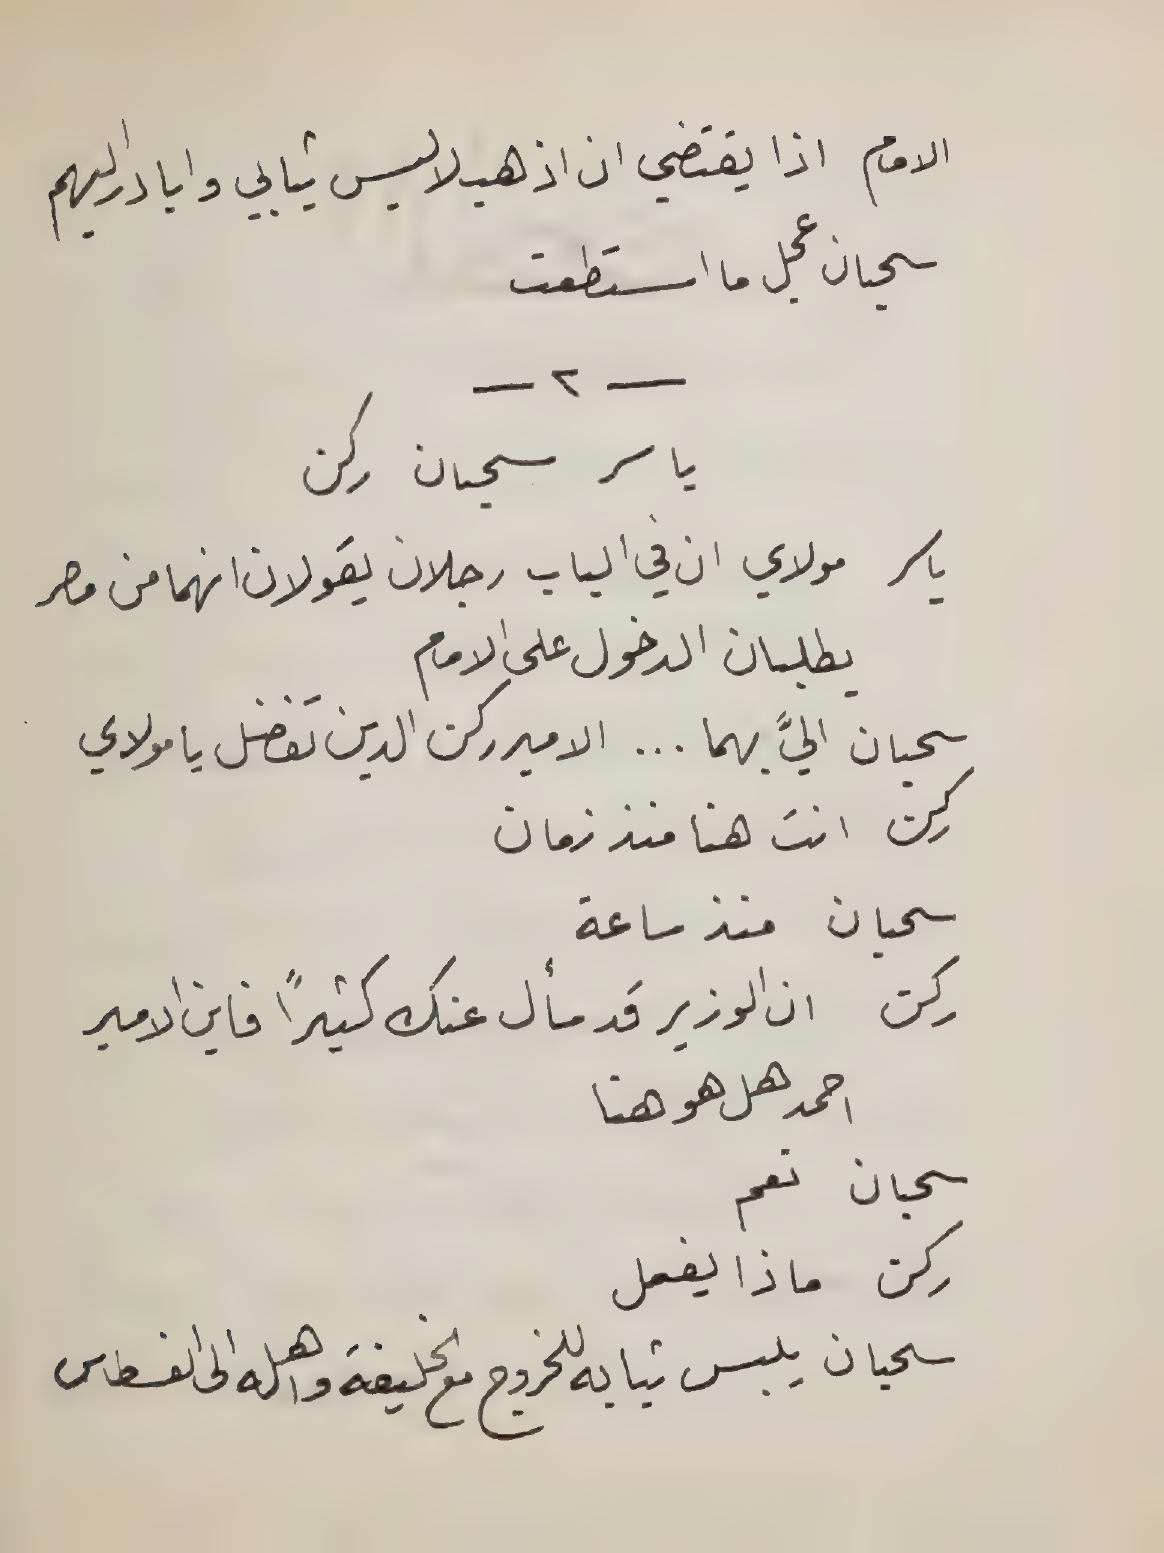 الامام اذا يقتضي ان اذهب لالبس ثيابي وابادر اليهم
سحبان عجل ما استطعت
— ٢ —
ياسر سحبان ركن
ياسر مولاي ان في الباب رجلان يقولان انهما من مصر
يطلبان الدخول على الامام
سحبان اليَّ بهما ... الامير ركن الدين تفضل يا مولاي
ركن انت هنا منذ زمان
سحبان منذ ساعة
ركن ان الوزير قد سأل عنك كثيرًا فاين الامير
احمد هل هو هنا
سحبان نعم
ركن ماذا يفعل
سحبان يلبس ثيابه للخروج مع الخليفة واهله الى الفسطاس